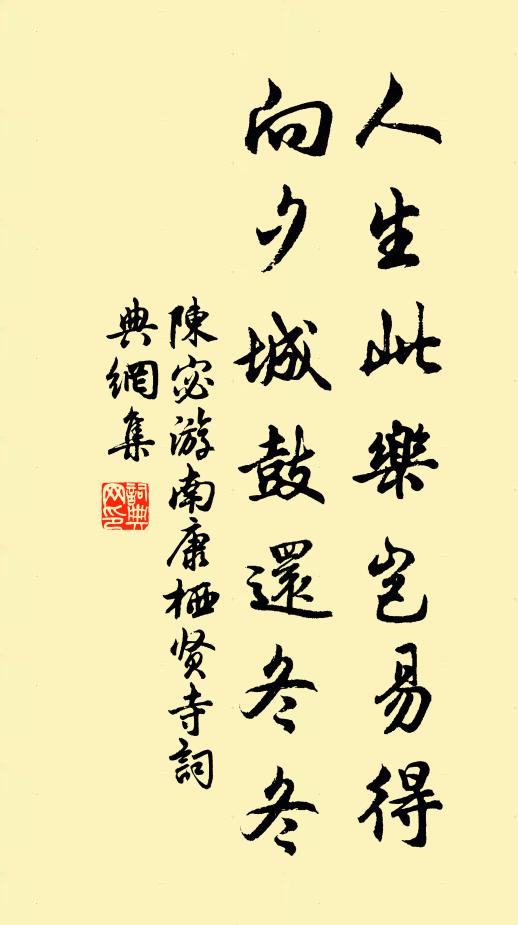 人生此樂岂易得
向夕城鼓還冬冬
陳宓游南康栖贤寺詞
典網集
詞典
网印